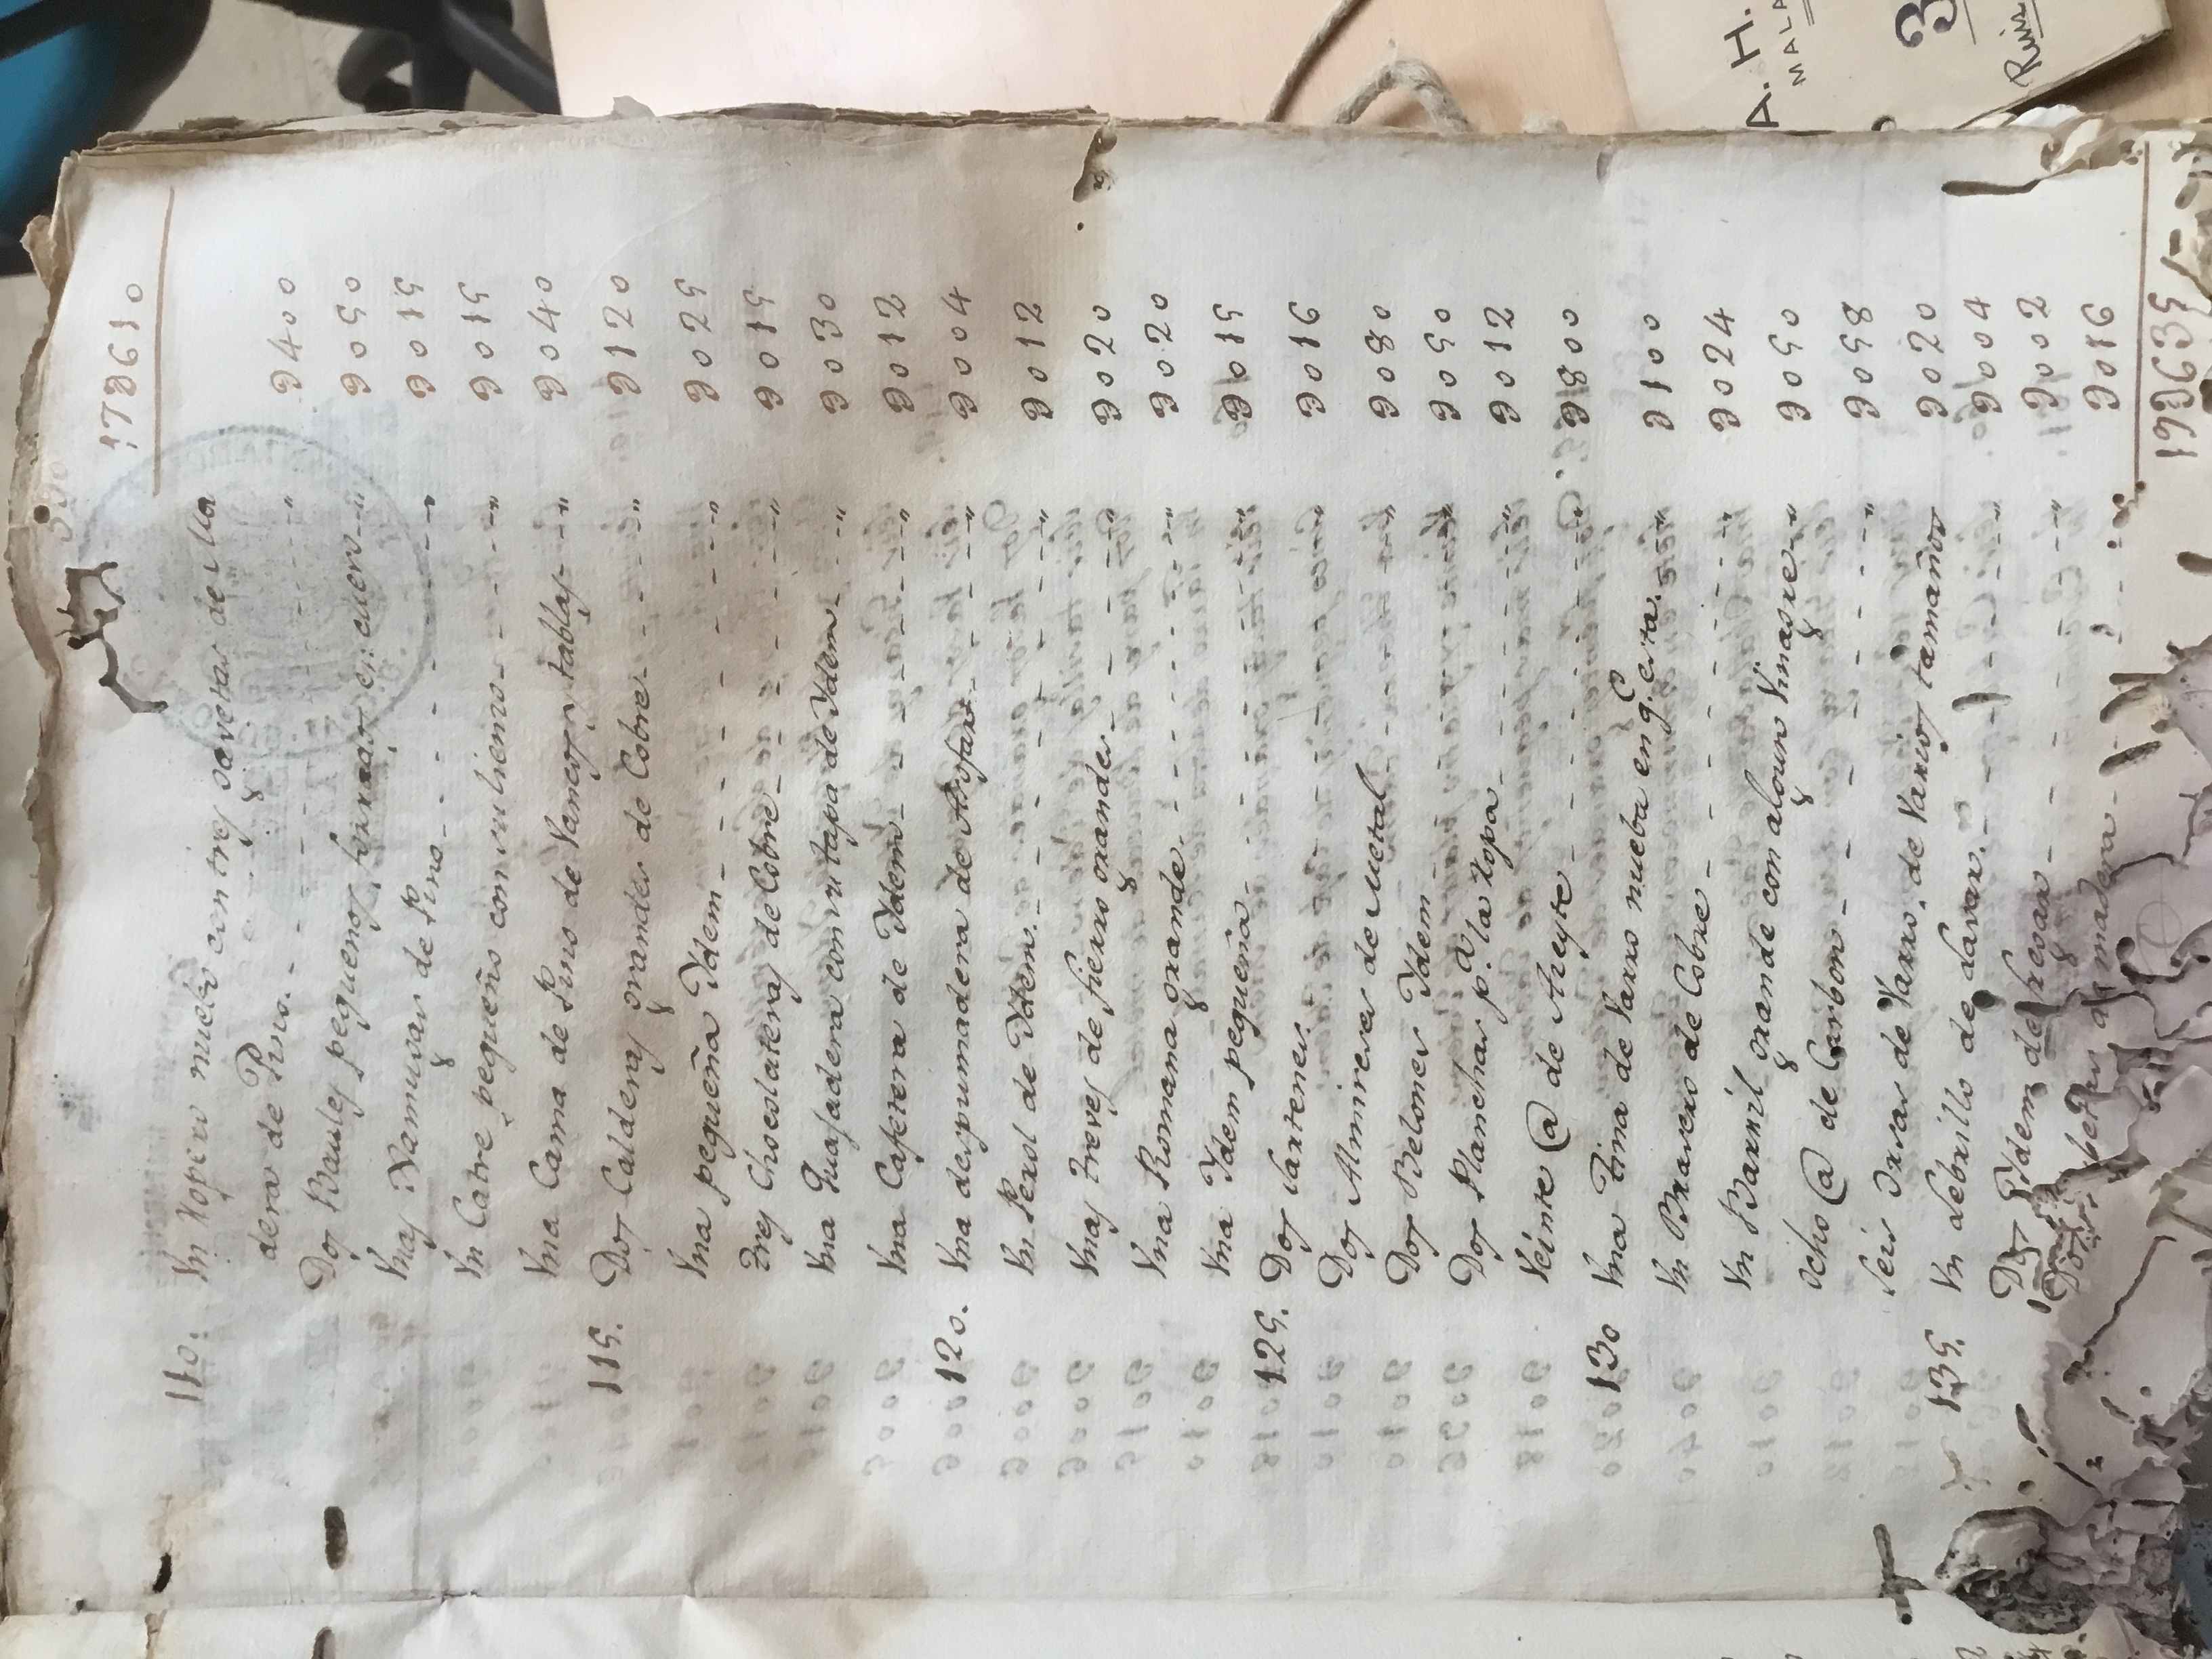 17ϑ610
110. Vn Ropero nuebo con tres gavetas de Ma
dera de Pino. ϑ400
Dos Baules pequeños forrados en cuero ϑ050
Vnas de Pino ϑ015
Vn Catre pequeño con su lienso ϑ015
Vna Cama de Pino de Vancos y tablas ϑ040
115. Dos Calderas grandes de Cobre ϑ120
Vna pequeña Ydem ϑ025
Tres Chocolateras de Cobre ϑ015
Vna Guasadera con su tapa de Ydem ϑ030
Vna Cafetera de Ydem ϑ012
120. Vna despumadera de Asofar ϑ004
Vn Perol de Ydem ϑ012
Vnas Treves de fierro grandes ϑ020
Vna Romana grande ϑ020
Vna Ydem pequeña ϑ015
125. Dos Sartenes ϑ016
Dos Almireses de Metal ϑ080
Dos Belones Ydem ϑ050
Dos Planchas p.ª la Ropa ϑ012
Veinte @ de Aseyte ϑ800
130 Vna Tina de Varro nueba en q.e esta ϑ100
Vn Brasero de Cobre ϑ024
Vn Barril grande con algun Vinagre ϑ050
Ocho @ de Carbon ϑ058
Seis Orsas de Varro, de Varios tamaños ϑ020
135. Vn Lebrillo de Lavar ϑ004
Dos Ydem de fregar ϑ002
Dos de madera ϑ016
19ϑ635
A. H.
MALA
3
Ruiz